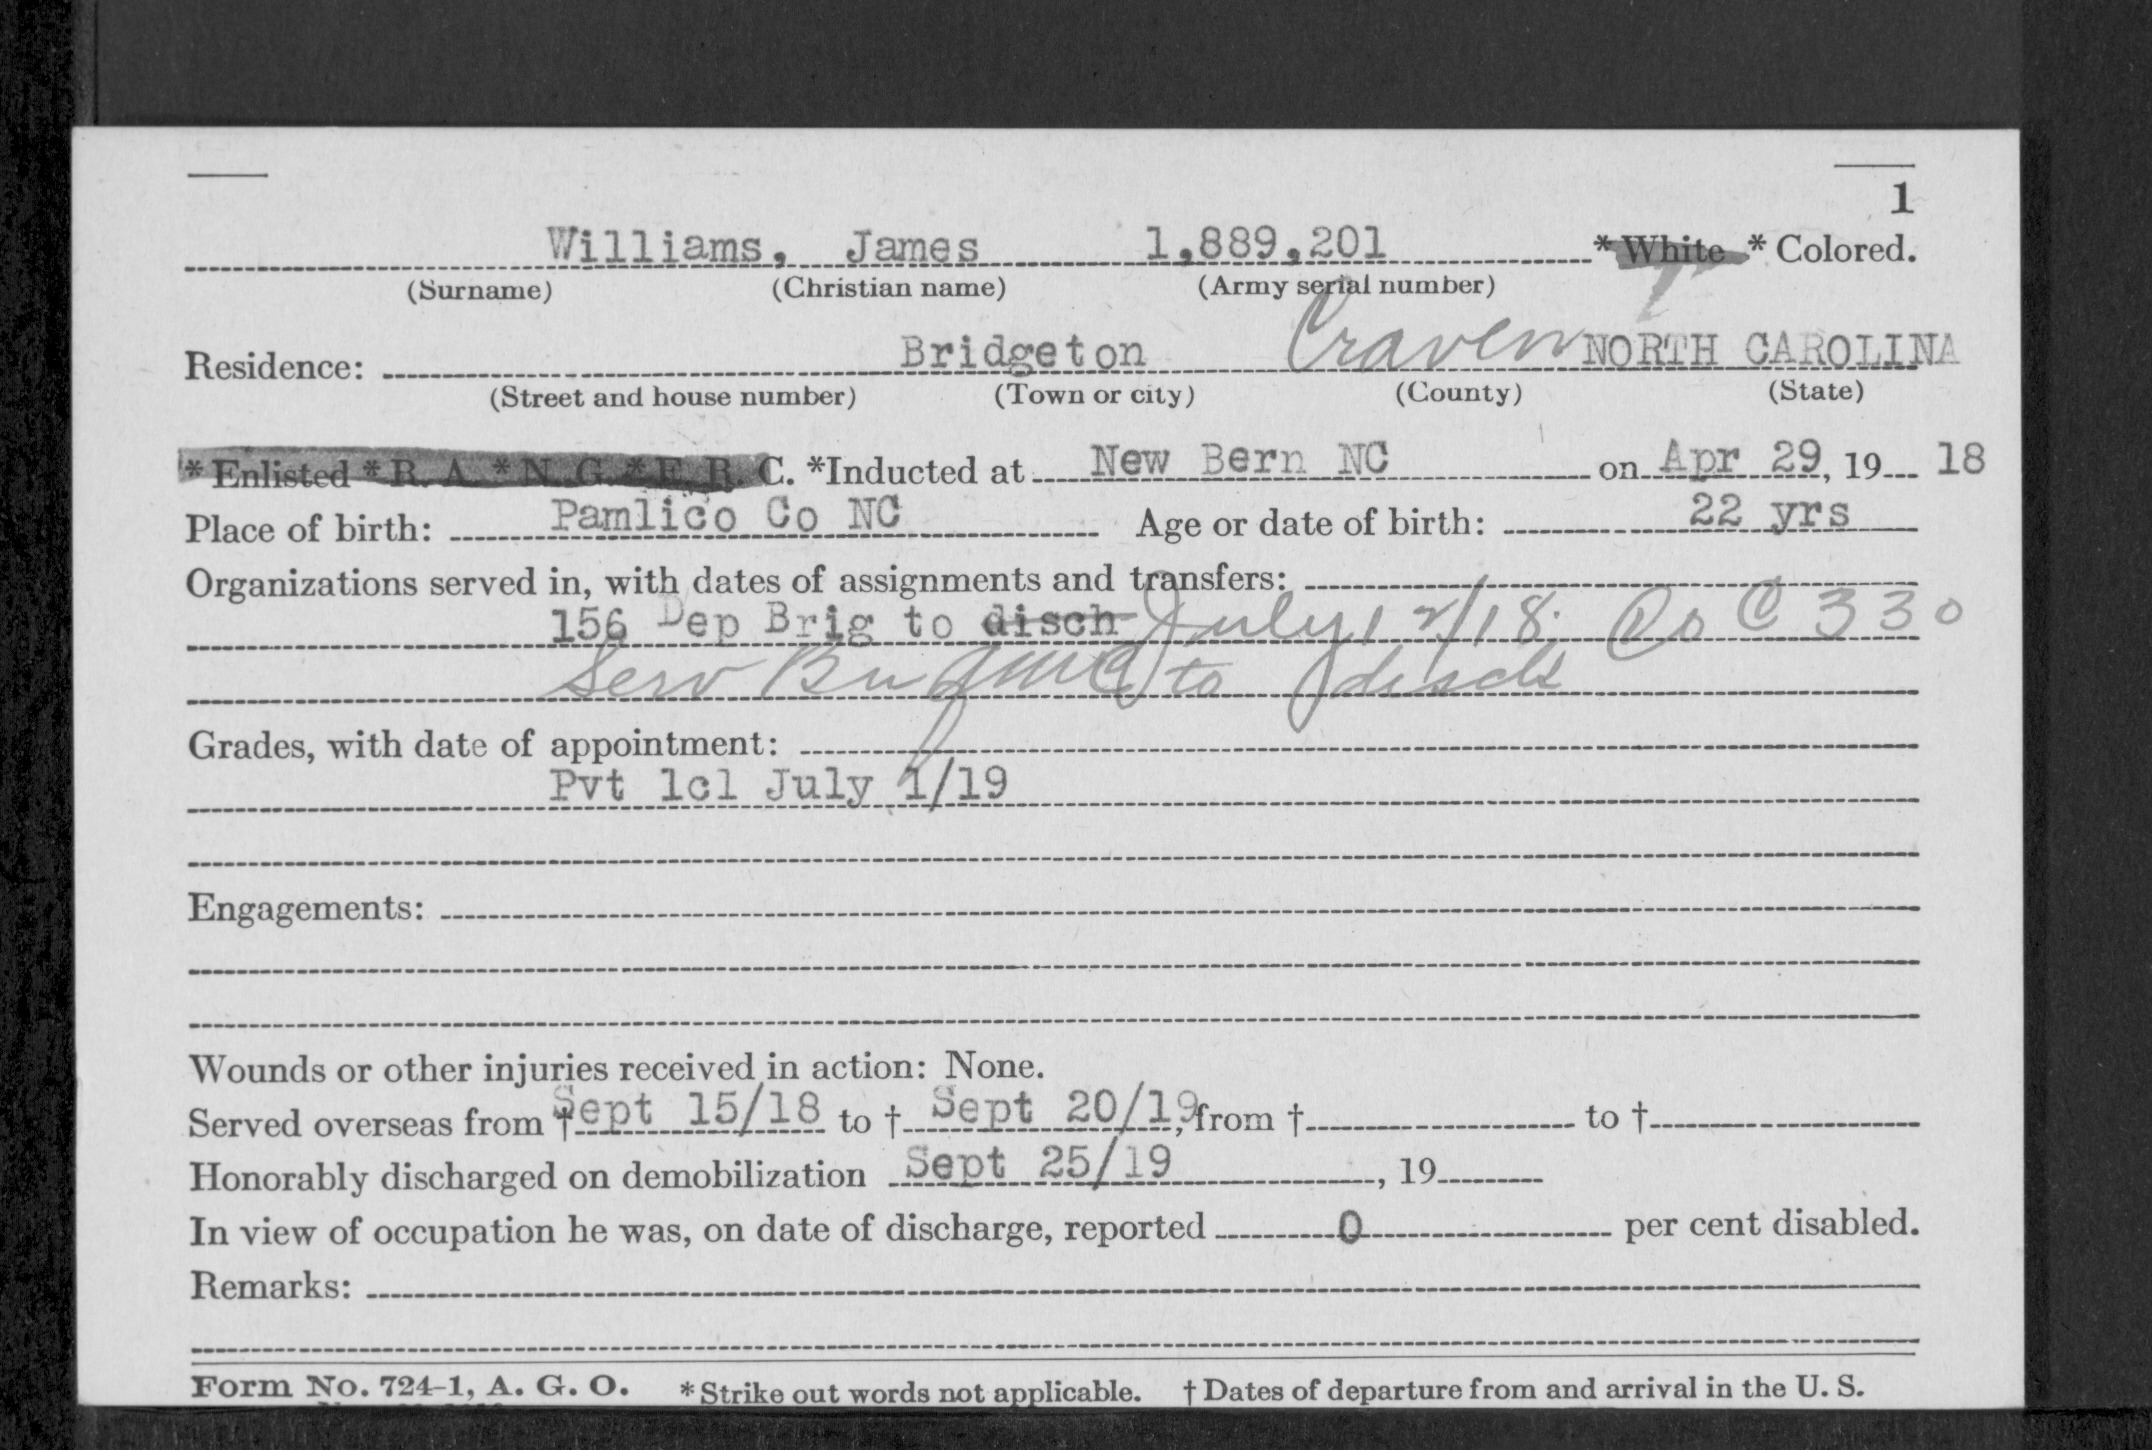 1
Williams, James 1,889,201 * White * Colored.
(Surname) (Christian name) (Army serial number)
Residence: Bridgeton Craven NORTH CAROLINA
(Street and house number) (Town or city) (County) (State)
* Enlisted * R. A. * N. G. * E. R. C. *Inducted at New Bern NC on Apr 29, 19 18
Place of birth: Pamlico Co NC Age or date of birth: 22 yrs
Organizations served in, with dates of assignments and transfers:
156 Dep Brig to disch July 12/18; Co C 330
Serv Bn QMC to disch
Grades, with date of appointment:
Pvt 1cl July 1/19
Engagements:
Wounds or other injuries received in action: None.
Served overseas from † Sept 15/18 to † Sept 20/19, from † to †
Honorably discharged on demobilization Sept 25/19, 19
In view of occupation he was, on date of discharge, reported 0 per cent disabled.
Remarks:
Form No. 724-1, A. G. O. * Strike out words not applicable. † Dates of departure from and arrival in the U. S.